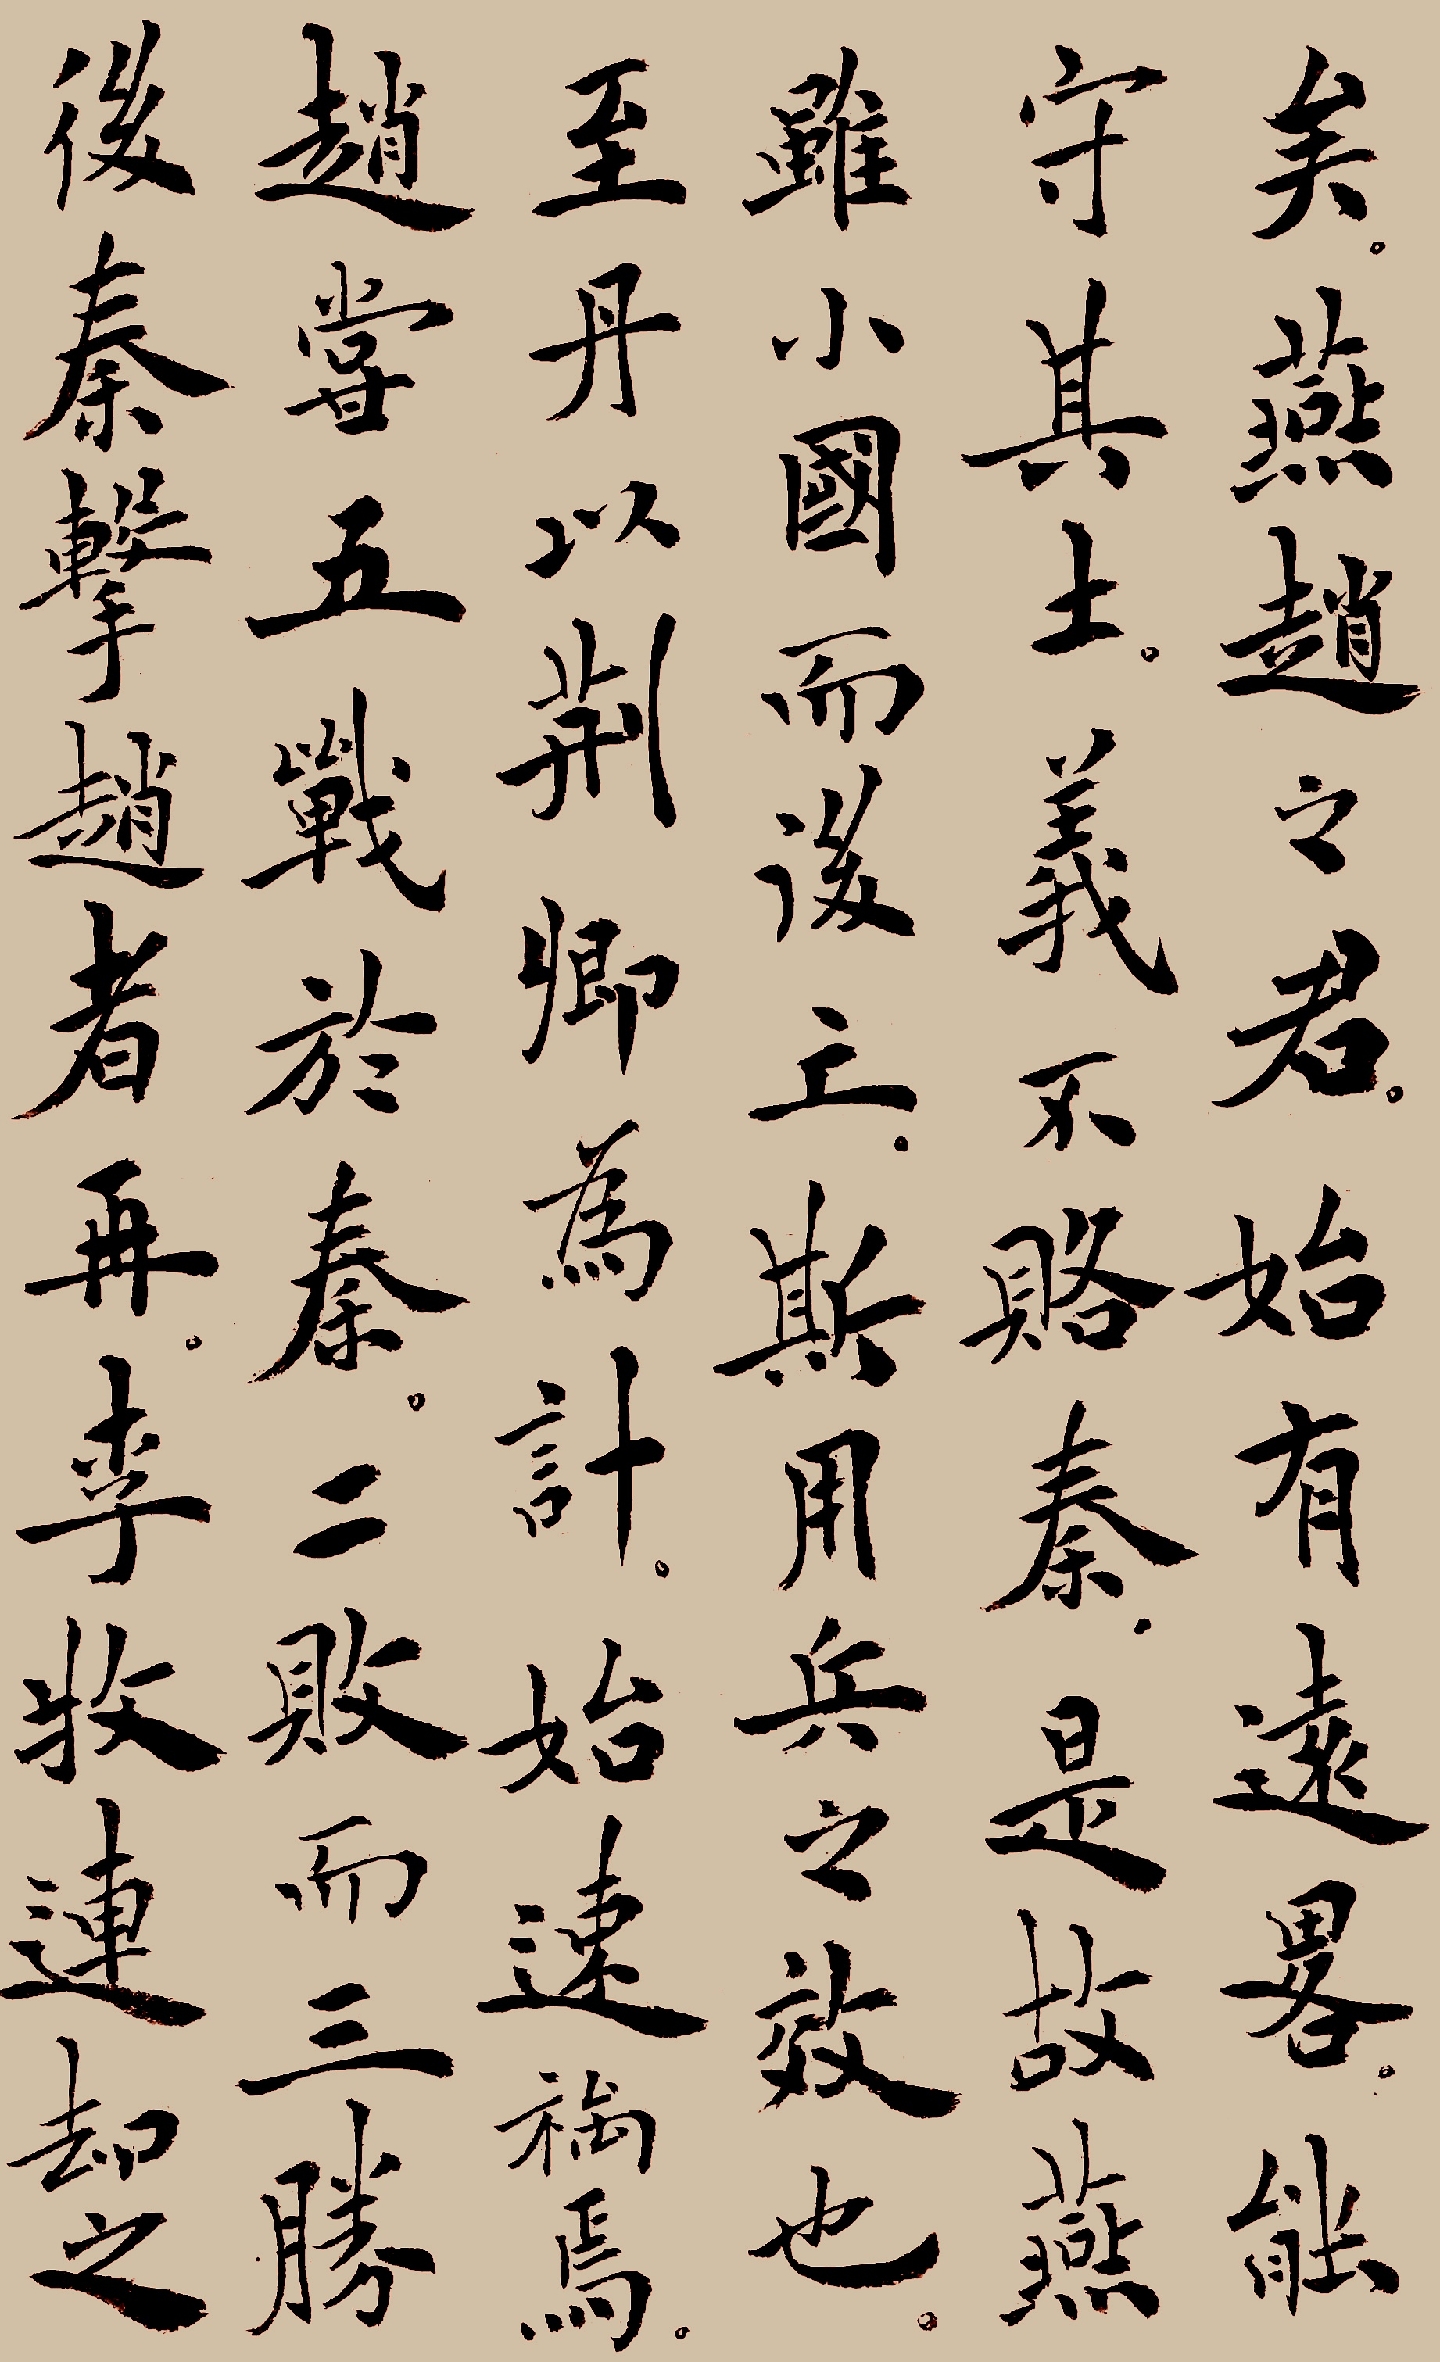 矣。燕趙之君。始有遠畧。能
守其土。義不賂秦。是故燕
雖小國而後亡。斯用兵之效也。
至丹以荊卿為計。始速禍焉。
趙嘗五戰於秦。二敗而三勝
後秦擊趙者再。李牧連却之